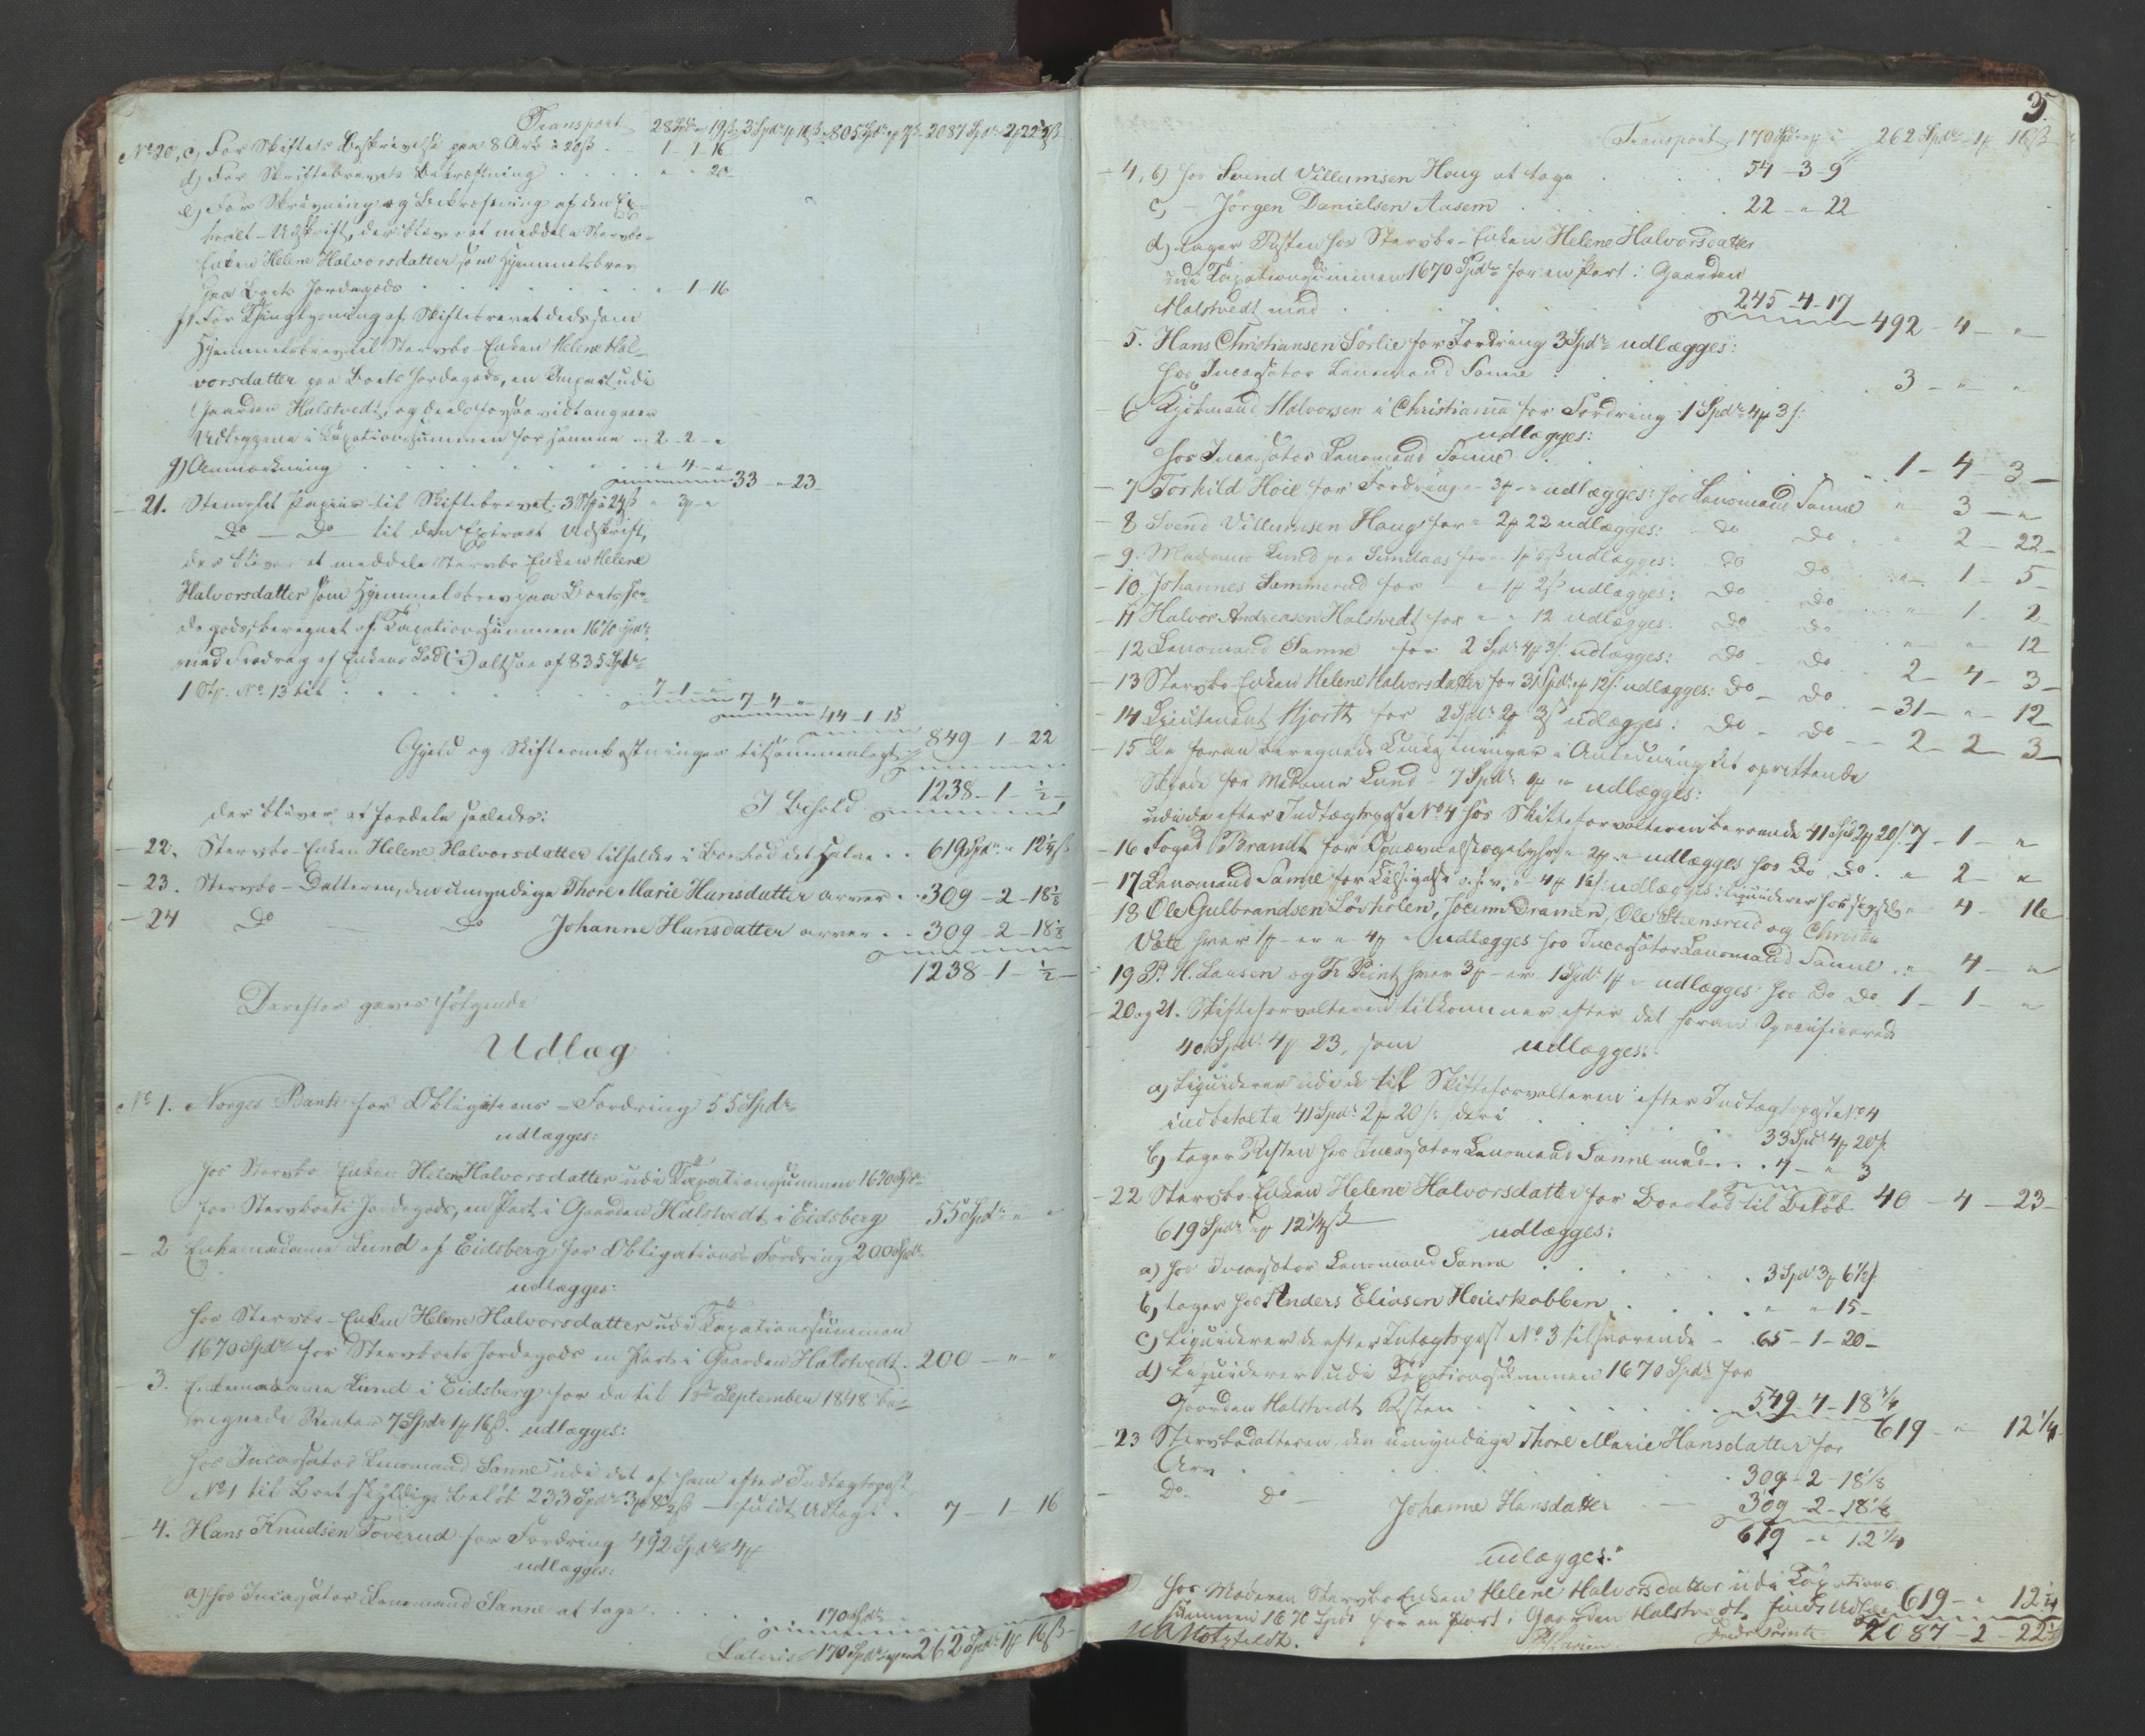 Transport 28 Spdr " 19 ß 3 Spdr 1 ƒ 10 ß 805 Spdr " 7 ß 2087 Spdr 2 ƒ 22½ ß
No 20, c, For Skiftets Beskrivelse paa 8 Ark à 20 ß . 1 - 1 - 16
d, For Skiftebrevets Bekræftning . . . . " " 20
e, For Skrivning og Bekræftning af den Ex-
tract-Udskrift, der bliver at meddele Stervbo-
Enken Helene Halvorsdatter som Hjemmelsbrev
paa Boets Jordegods . . . . " 1 - 16
f, For Thinglysning af Skiftebrevet deels som
Hjemmelsbrev til Stervbo-Enken Helene Hal-
vorsdatter paa Boets Jordegods, en Anpart udi
Gaarden Halstvedt, og deels forsaavidt angaaer
Udlæggene i Taxationssummen for samme . 2 - 2 - "
g, Anmærkning . . . . " 4 - " 33 - " 23
21. Stemplet Papiir til Skiftebrevet. 3 Stk à 24 ß " 3 - "
Do — Do — til den Extract Udskrift,
der bliver at meddele Stervbo Enken Helene
Halvorsdatter som Hjemmelsbrev paa Boets Jor-
degods, beregnet af Taxationssummen 1670 Spdr
med Fradrag af Enkens Lod (½) altsaa af 835 Spdr
1 Stk. No 13 til . . . . 7 - 1 - " 7 - 4 - "
44 - 1 - 15
Gjeld og Skifteomkostninger tilsammenlagt 849 - 1 - 22
I Behold 1238 - 1 - ½
der bliver at fordele saaledes:
22. Stervbo-Enken Helene Halvorsdatter tilfalder i Boeslod det Halve . . 619 Spdr " 12¼ ß
23. Stervbo-Datteren, den umyndige Thore Marie Hansdatter arver . . 309 - 2 - 18⅛
24 Do — Do Johanne Hansdatter arver . . 309 - 2 - 18⅛
1238 - 1 - ½
Derefter gaves følgende
Udlæg
No 1. Norges Bank for Obligations-Fordring 55 Spdr
udlægges:
hos Stervbo Enken Helene Halvorsdatter udi Taxationssummen 1670 Spdr
for Stervboets Jordegods, en Part i Gaarden Halstvedt i Eidsberg 55 Spdr " "
2 Enkemadame Lund af Eidsberg for Obligations-Fordring 200 Spdr
udlægges:
hos Stervbo-Enken Helene Halvorsdatter udi Taxationssummen
1670 Spdr for Stervboets Jordegods en Part i Gaarden Halstvedt . 200 - " "
3. Enkemadame Lund i Eidsberg for de til 1ste September 1848 be-
regnede Renter 7 Spdr 1 ƒ 16 ß. udlægges:
hos Incassator Lensmand Sanne udi det af ham efter Indtægtspost
No 1 til Boet skyldige Beløb 233 Spdr 3 ƒ 8½ ß — fuldt Udlæg . . 7 - 1 - 16
4. Hans Knudsen Toverud for Fordring 492 Spdr 4 ƒ
udlægges:
a) hos Incassator Lensmand Sanne at tage . . . . 170 Spdr
Lateris 170 Spdr " " 262 Spdr 1 ƒ 16 ß
3.
Transport 170 Spdr " " 262 Spdr 1 ƒ 16 ß
4, b) hos Svend Villumsen Haug at tage . . . 54 - 3 - 9
c, — Jörgen Danielsen Aasem . . . 22 - " 22
d, tages Resten hos Stervbo-Enken Helene Halvorsdatter
udi Taxationssummen 1670 Spdr for en Part i Gaarden
Halstvedt med . . . 245 - 4 - 17 492 - 4 - "
5. Hans Christiansen Sörlie for Fordring 3 Spdr udlægges:
hos Incassator Lensmand Sanne . . . 3 - " "
6 Kjöbmand Halvorsen i Christiania for Fordring 1 Spdr 4 ƒ 3 ß:
udlægges:
hos Incassator Lensmand Sanne . . . 1 - 4 - 3
7 Torkild Höie for Fordring " 3 ƒ " udlægges: hos Lensmand Sanne " 3 - "
8 Svend Villumsen Haug for " 2 ƒ 22 udlægges: Do Do . . " 2 - 22
9. Madame Lund paa for " 1 ƒ 5 ß udlægges: Do Do . . " 1 - 5
10. Johannes Sammerud for " 1 ƒ 2 ß udlægges: Do Do . . " 1 - 2
11 Halvor Andreasen Halstvedt for " " 12 udlægges: Do Do . . " " 12
12 Lensmand Sanne for 2 Spdr 4 ƒ 3 ß. udlægges: Do Do . 2 - 4 - 3
13 Stervbo Enken Helene Halvorsdatter for 31 Spdr " 12 ß. udlægges: Do Do . 31 - " 12
14 Lieutenant Hjorth for 2 Spdr 2 ƒ 3 ß udlægges: Do Do — 2 - 2 - 3
15 De foran beregnede Omkostninger i Anledning det oprettende
Skjøde for Madame Lund 7 Spdr 1 ƒ " udlægges:
udi de efter Indtægtspost No 4 hos Skifteforvalteren beroende 41 Spdr 2 ƒ 20 ß. 7 - 1 - "
16 Foged Brandt for " 2 ƒ " udlægges hos Do Do . " 2 - "
17 Lensmand Sanne for Tilsigelse o.s.v. " 4 ƒ 16 ß: udlægges: liquiderer hos sig selv " 4 - 16
18 Ole Gulbrandsen Lövholen, Joen Dramen, Ole Steensrud og Christen
Væle hver 1 ƒ — er " 4 ƒ " udlægges hos Incassator Lensmand Sanne . . " 4 - "
19 P. H. Larsen og Fr Printz hver 3 ƒ — er 1 Spdr 1 ƒ " udlægges: hos Do Do 1 - 1 - "
20 og 21. Skifteforvalteren tilkommer efter det foran Specificerede
40 Spdr 4 ƒ 23, som udlægges:
a) liquiderer udi de til Skifteforvalteren efter Indtægtspost No 4
indbetalte 41 Spdr 2 ƒ 20 ß: deri . . . 33 Spdr 4 ƒ 20 ß.
b) tages Resten hos Incassator Lensmand Sanne med . . . 7 - " 3
40 - 4 - 23
22 Stervbo Enken Helene Halvorsdatter for Boeslod til Beløb
619 Spdr " ƒ 12¼ ß — udlægges:
a) hos Incassator Lensmand Sanne . . . 3 Spdr 3 ƒ 6½ ß
b) tages hos Anders Eliasen Höieskabben . . . " " 15
c) liquiderer de efter Indtægtspost No 3 tilsvarende — 65 - 1 - 20
d) liquiderer udi Taxationssummen 1670 Spdr for
Gaarden Halstvedt Resten . . . 549 - 4 - 18¾
619 - " 12¼
23 Stervbodatteren, den umyndige Thore Marie Hansdatter for
Arv . . . 309 - 2 - 18⅛
Do Do — Johanne Hansdatter — 309 - 2 - 18⅛
619 - " 12¼
udlægges:
hos Moderen Stervbo Enken Helene Halvorsdatter udi Taxations-
summen 1670 Spdr for en Part i Gaarden Halstvedt, fuldt Udlæg 619 - " 12¼
2087 - 2 - 22½
Motzfeldt. PHLarsen Fredr Printz